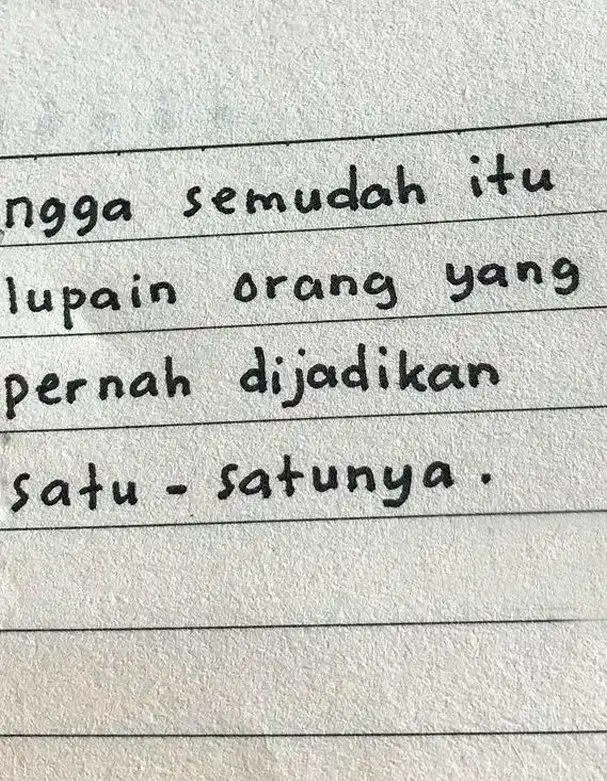 ngga semudah itu
lupain orang yang
pernah dijadikan
satu - satunya.